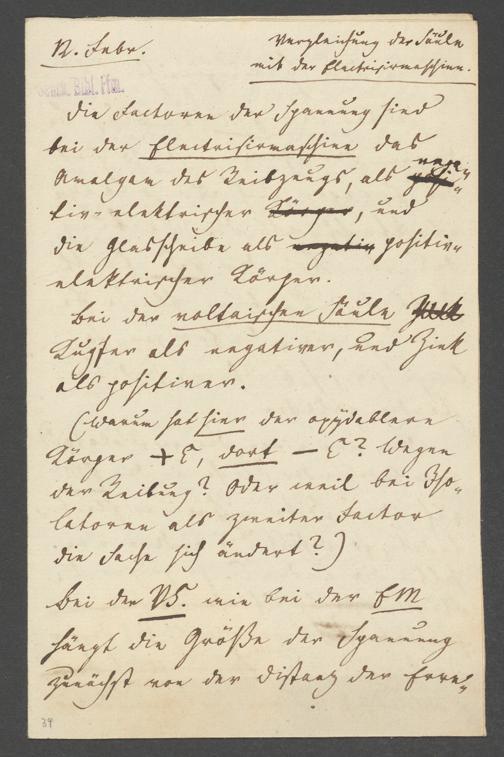 12. Febr.
Vergleichung der Säule
mit der Electrisirmaschine.
Senck. Bibl. Ffm.
Die Factoren der Spannung sind
bei der Electrisirmaschine das
Amalgam des Reibzeugs, als nega-
tiv-elektrischer Körper, und
die Glasscheibe als negativ positiv-
elektrischer Körper.
Bei der voltaischen Säule Zink
Kupfer als negativer, und Zink
als positiver.
(Warum hat hier der oxydablere
Körper + E, dort – E? Wegen
der Reibung? Oder weil bei Iso-
latoren als zweiter Factor
die Sache sich ändert?)
Bei der VS. wie bei der EM
hängt die Größe der Spannung
zunächst von der Distanz der Erre-
39